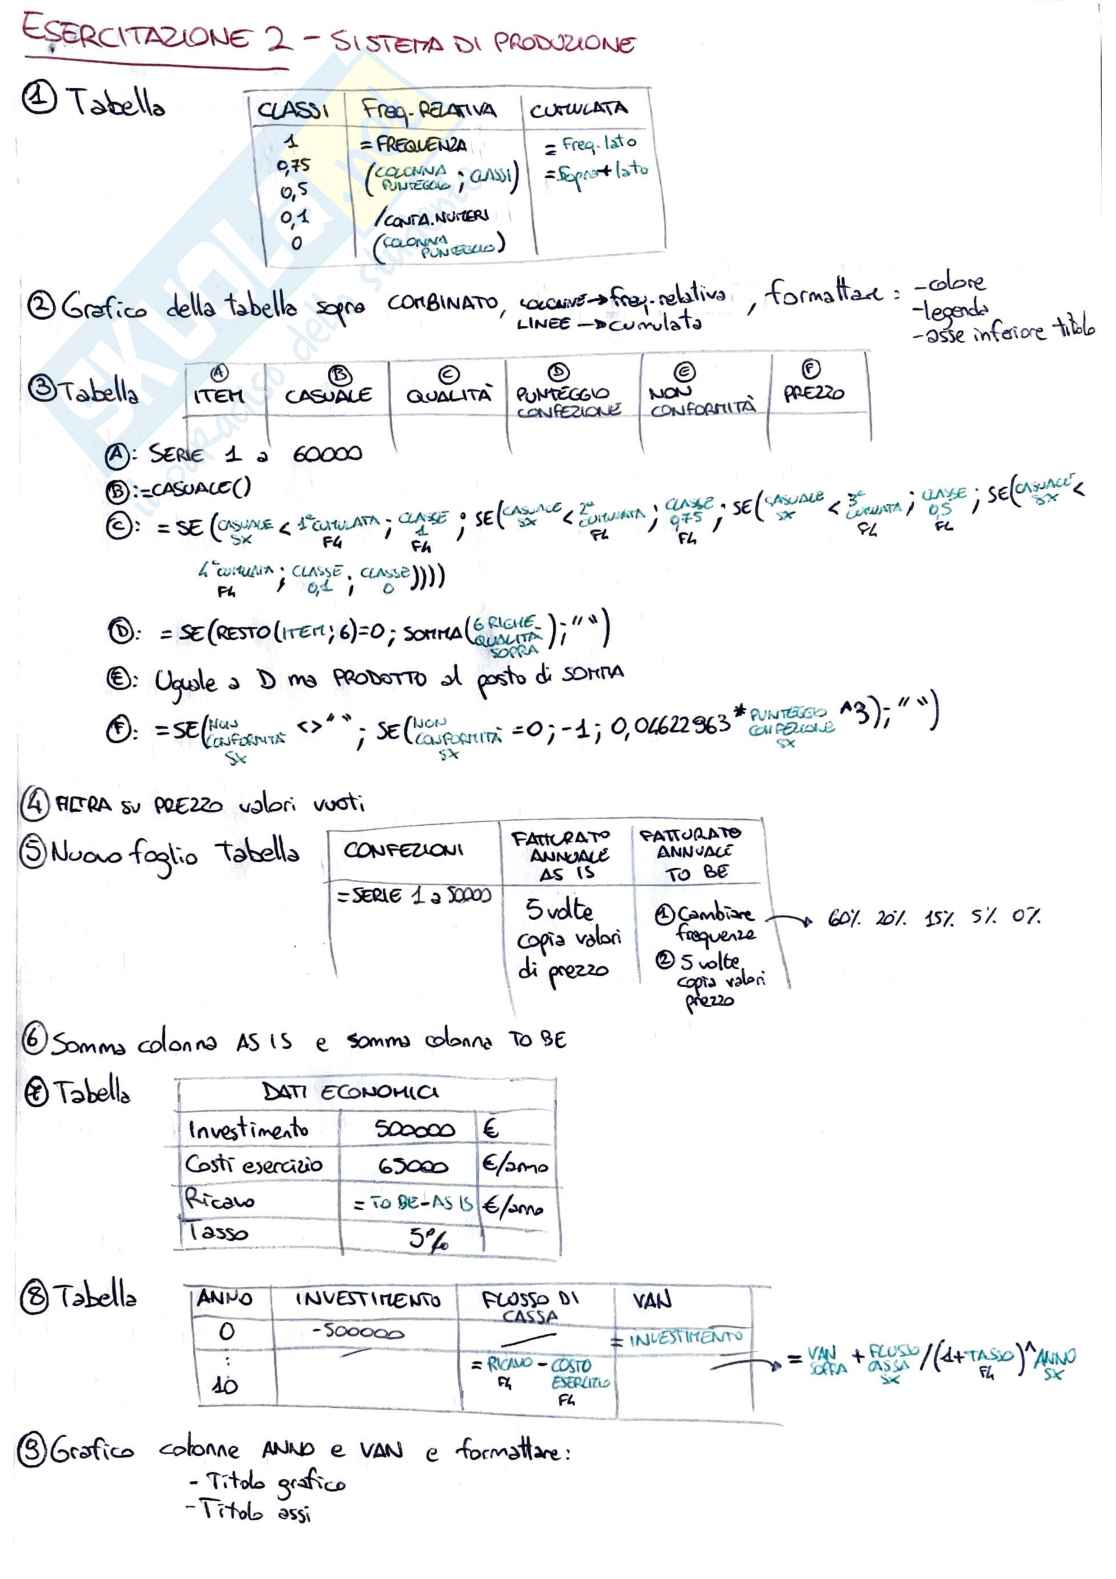 ESERCITAZIONE 2 - SISTEMA DI PRODUZIONE
① Tabella
CLASSI Freq. RELATIVA CUMULATA
1 = FREQUENZA = Freq. lato
0,75 (COLONNA PUNTEGGIO ; CLASSI) = Sopra + lato
0,5
0,1 / CONTA.NUMERI
0 (COLONNA PUNTEGGIO)
② Grafico della tabella sopra COMBINATO, COLONNE → freq. relativa, formattare : - colore
LINEE → Cumulata - legenda
- asse inferiore titolo
③ Tabella
Ⓐ Ⓑ Ⓒ Ⓓ Ⓔ Ⓕ
ITEM CASUALE QUALITÀ PUNTEGGIO CONFEZIONE NON CONFORMITÀ PREZZO
Ⓐ: SERIE 1 a 60000
Ⓑ: =CASUALE()
Ⓒ: = SE (CASUALE SX < 1ª CUMULATA F4 ; CLASSE 1 F4 ; SE (CASUALE SX < 2ª CUMULATA F4 ; CLASSE 0,75 F4 ; SE (CASUALE SX < 3ª CUMULATA F4 ; CLASSE 0,5 F4 ; SE (CASUALE SX <
4ª CUMULATA F4 ; CLASSE 0,1 ; CLASSE 0))))
Ⓓ: = SE (RESTO (ITEM; 6)=0 ; SOMMA (6 RIGHE QUALITÀ SOPRA) ; "")
Ⓔ: Uguale a D ma PRODOTTO al posto di SOMMA
Ⓕ: = SE (NON CONFORMITÀ SX <> "" ; SE (NON CONFORMITÀ SX = 0 ; -1 ; 0,04622963 * PUNTEGGIO CONFEZIONE SX ^3) ; "")
④ FILTRA SU PREZZO valori vuoti
⑤ Nuovo foglio Tabella
CONFEZIONI FATTURATO ANNUALE AS IS FATTURATO ANNUALE TO BE
= SERIE 1 a 50000 5 volte copia valori di prezzo ① Cambiare frequenze → 60% 20% 15% 5% 0%
② 5 volte copia valori prezzo
⑥ Somma colonna AS IS e somma colonna TO BE
⑦ Tabella
DATI ECONOMICI
Investimento 500000 €
Costi esercizio 65000 €/anno
Ricavo = TO BE - AS IS €/anno
Tasso 5%
⑧ Tabella
ANNO INVESTIMENTO FLUSSO DI CASSA VAN
0 -500000 — = INVESTIMENTO
: — = RICAVO F4 - COSTO ESERCIZIO F4 → = VAN SOPRA + FLUSSO CASSA SX / (1+TASSO F4)^ANNO SX
10
⑨ Grafico colonne ANNO e VAN e formattare:
- Titolo grafico
- Titolo assi